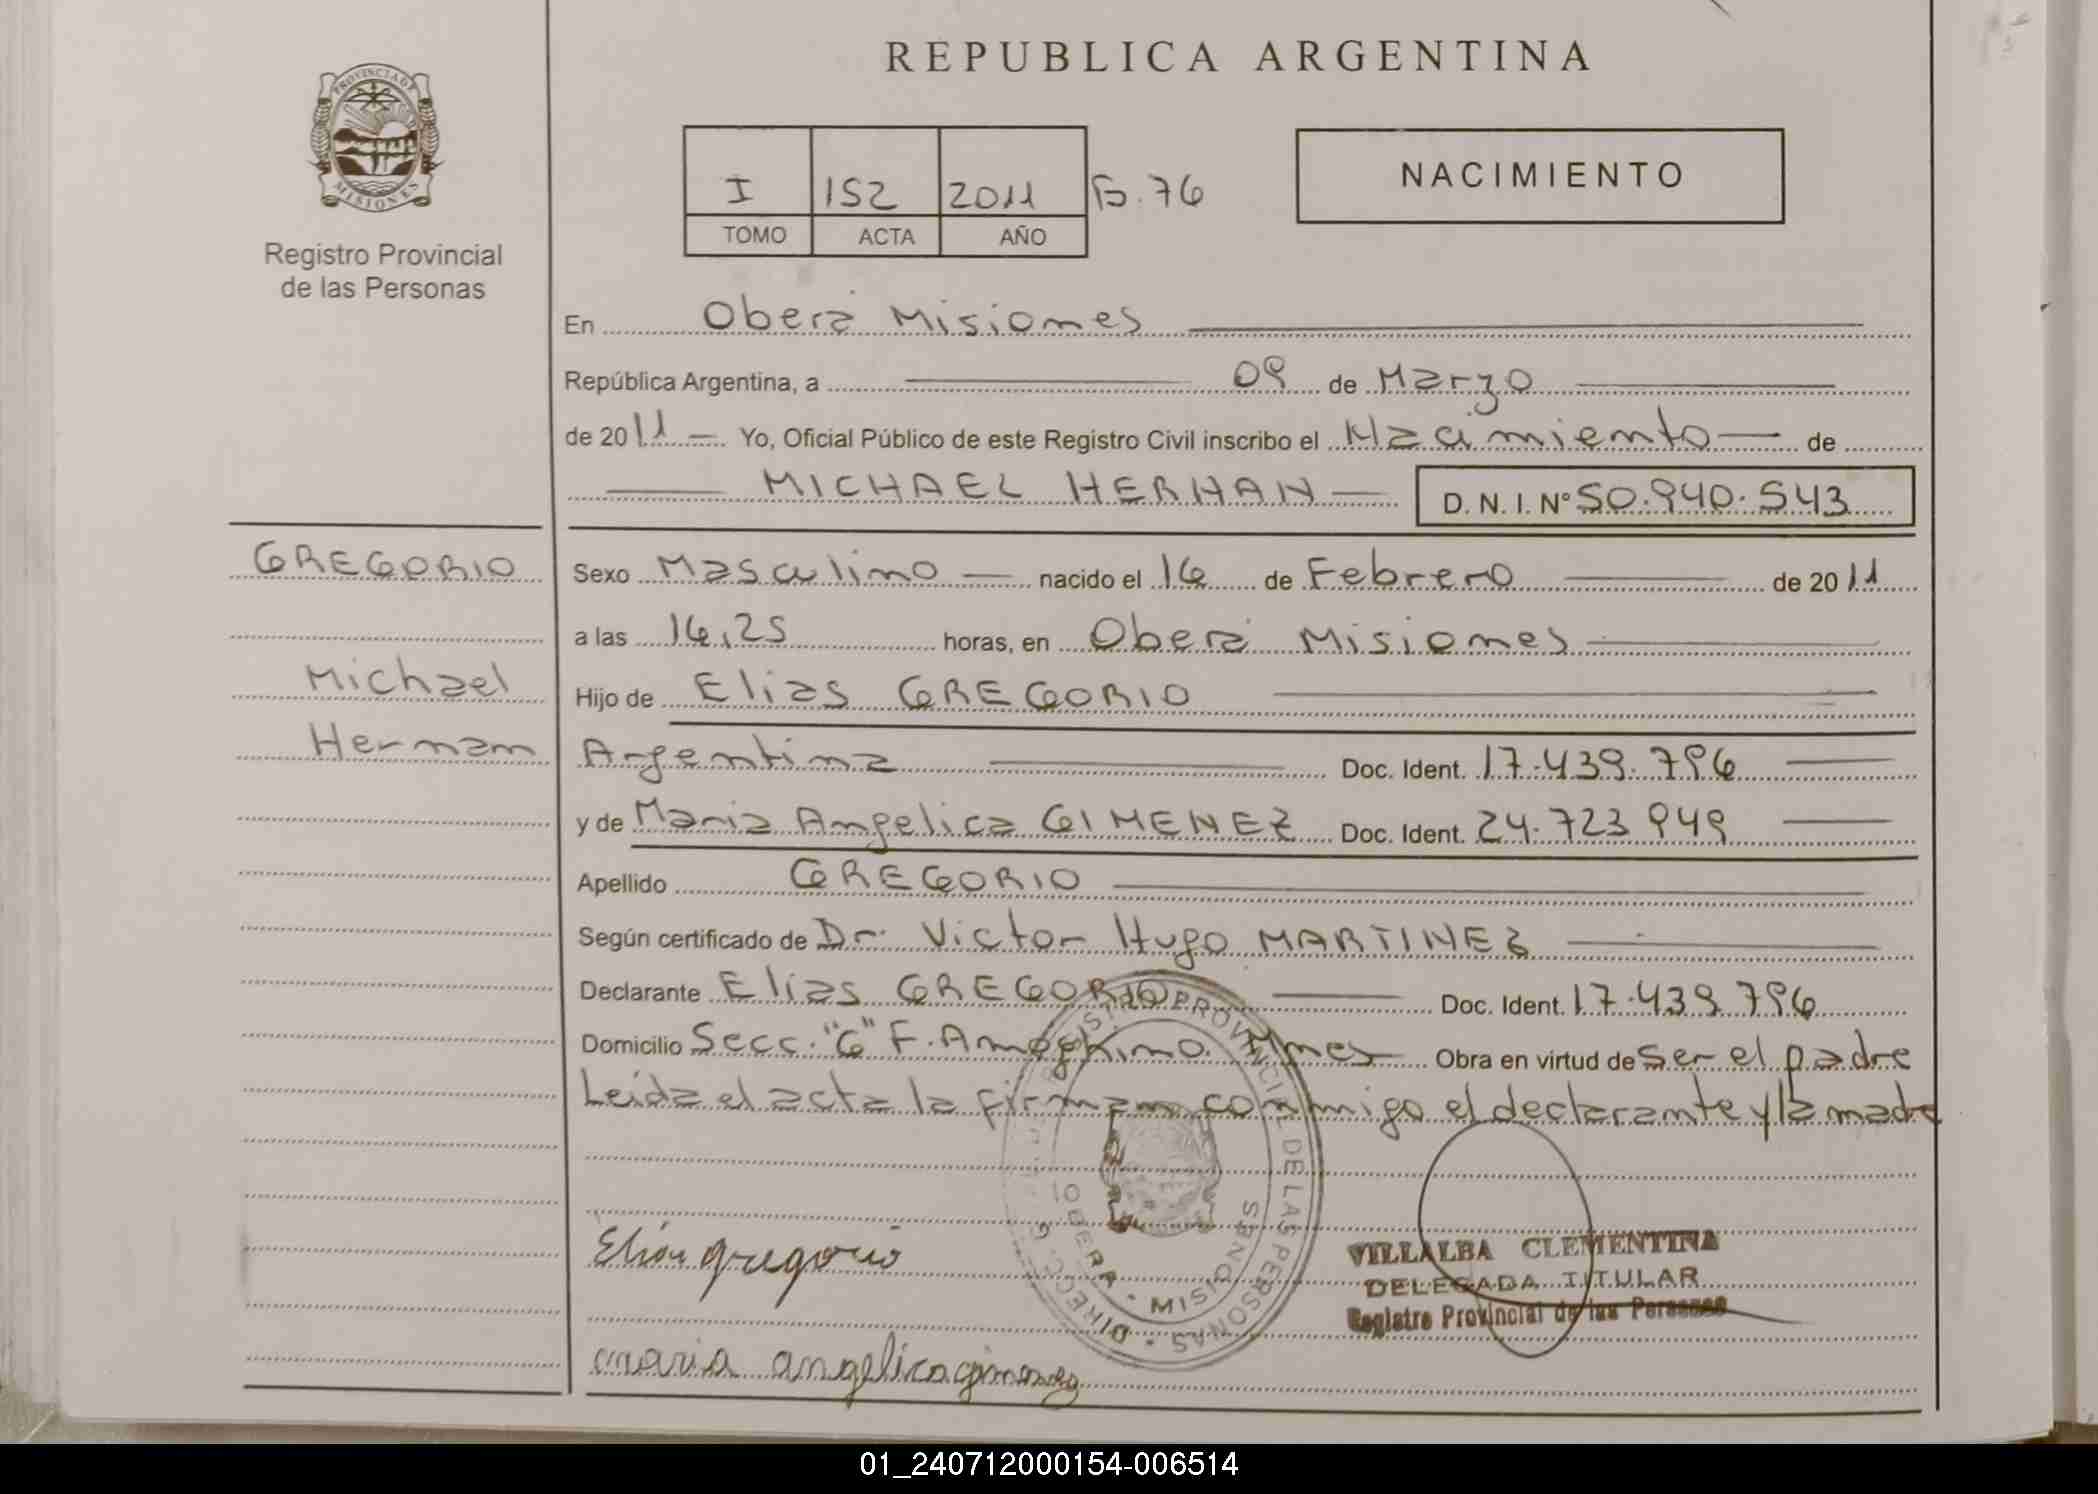 REPUBLICA ARGENTINA
PROVINCIA DE
MISIONES
Registro Provincial
de las Personas
I 152 2011 Fo. 76
TOMO ACTA AÑO
NACIMIENTO
En Oberá Misiones
República Argentina, a 09 de Marzo
de 2011 Yo, Oficial Público de este Registro Civil inscribo el Nacimiento de
MICHAEL HERNAN D. N. I. Nº 50.940.543
GREGORIO
Michael
Hernan
Sexo Masculino nacido el 16 de Febrero de 2011
a las 16,25 horas, en Oberá Misiones
Hijo de Elias GREGORIO
Argentina Doc. Ident. 17.439.796
y de Maria Angelica GIMENEZ Doc. Ident. 24.723.949
Apellido GREGORIO
Según certificado de Dr. Victor Hugo MARTINEZ
Declarante Elias GREGORIO Doc. Ident. 17.439.796
Domicilio Secc. "G" F. Ameghino Mnes Obra en virtud de ser el padre
Leída el acta la firman conmigo el declarante y la madre
REGISTRO PROVINCIAL DE LAS PERSONAS
OBERA · MISIONES
Elias gregorio
VILLALBA CLEMENTINA
DELEGADA TITULAR
Registro Provincial de las Personas
maria angelica gimenez
01_240712000154-006514